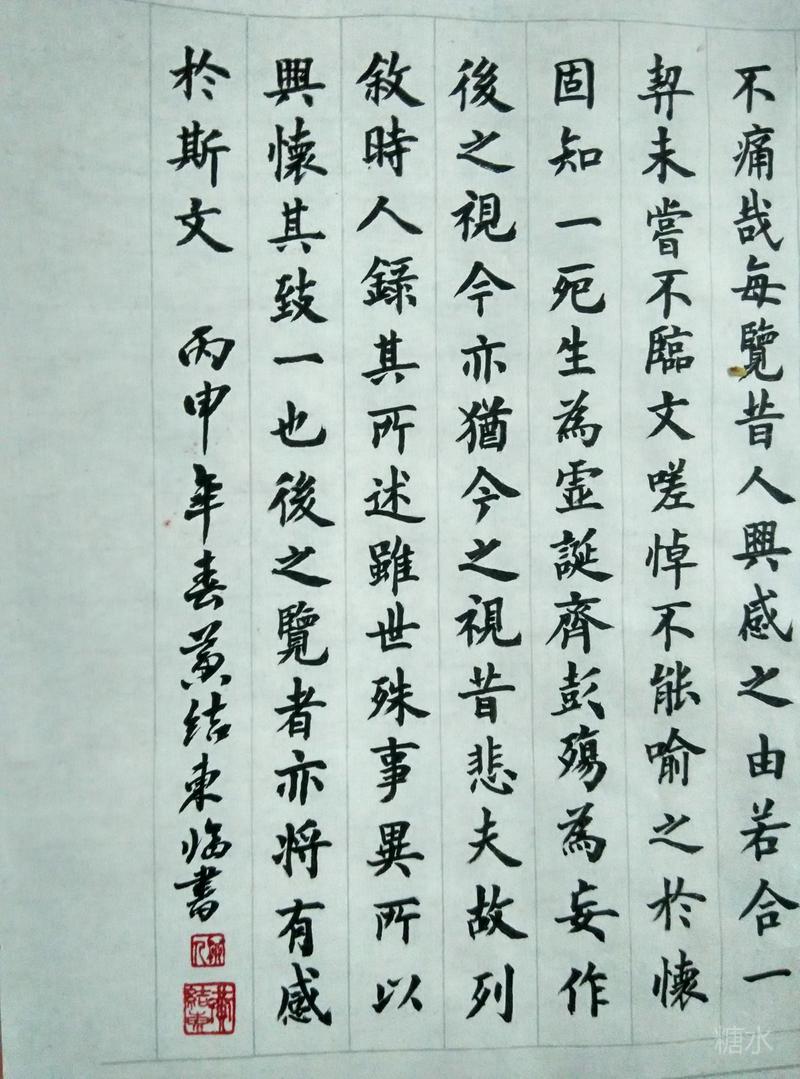 不痛哉每覽昔人興感之由若合一
契未嘗不臨文嗟悼不能喻之於懷
固知一死生為虛誕齊彭殤為妄作
後之視今亦猶今之視昔悲夫故列
敘時人錄其所述雖世殊事異所以
興懷其致一也後之覽者亦將有感
於斯文 丙申年春黃結東臨書
糖水